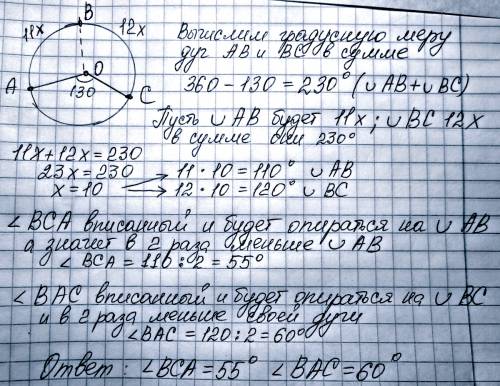 B
11x 12x
O
A 130 C
Вычислим градусную меру
дуг АВ и ВС в сумме
360 - 130 = 230° (∪AB+∪BC)
Пусть ∪AB будет 11x; ∪BC 12x
в сумме они 230°
11x+12x=230
23x=230
x=10
11·10=110° ∪AB
12·10=120° ∪BC
∠BCA вписанный и будет опираться на ∪AB
а значит в 2 раза меньше ∪AB
∠BCA = 110:2=55°
∠BAC вписанный и будет опираться на ∪BC
и в 2 раза меньше своей дуги
∠BAC = 120:2=60°
Ответ: ∠BCA=55° ∠BAC=60°